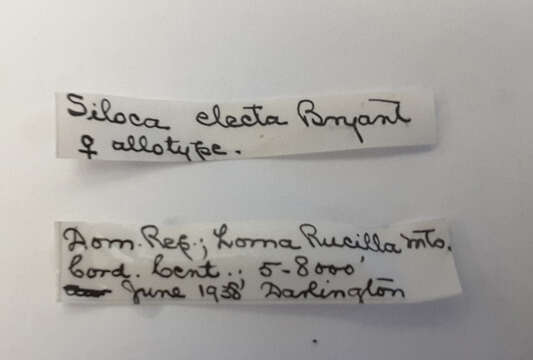 Siloca electa Bryant
♀ allotype.
Dom. Rep.; Loma Rucilla Mts.
Cord. Cent.: 5-8000'
June 1938 Darlington